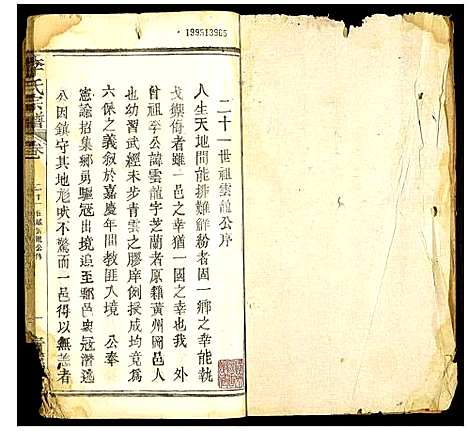 199513905
二十一世祖雲龍公序
人生天地間能排難解紛者固一鄉之幸能執
戈禦侮者雖一邑之幸猶一國之幸也我　外
曾祖李公諱雲龍字芝蘭者原籍黃州岡邑人
也幼習武經未步青雲之膠庠例授成均竟為
六保之義叙於嘉慶年間教匪入境　公奉
憲諭招集鄉勇驅寇出境追至鄰邑衆寇潛逃
公因鎮守其地尨吠不驚而一邑得以無恙者
李氏宗譜
卷